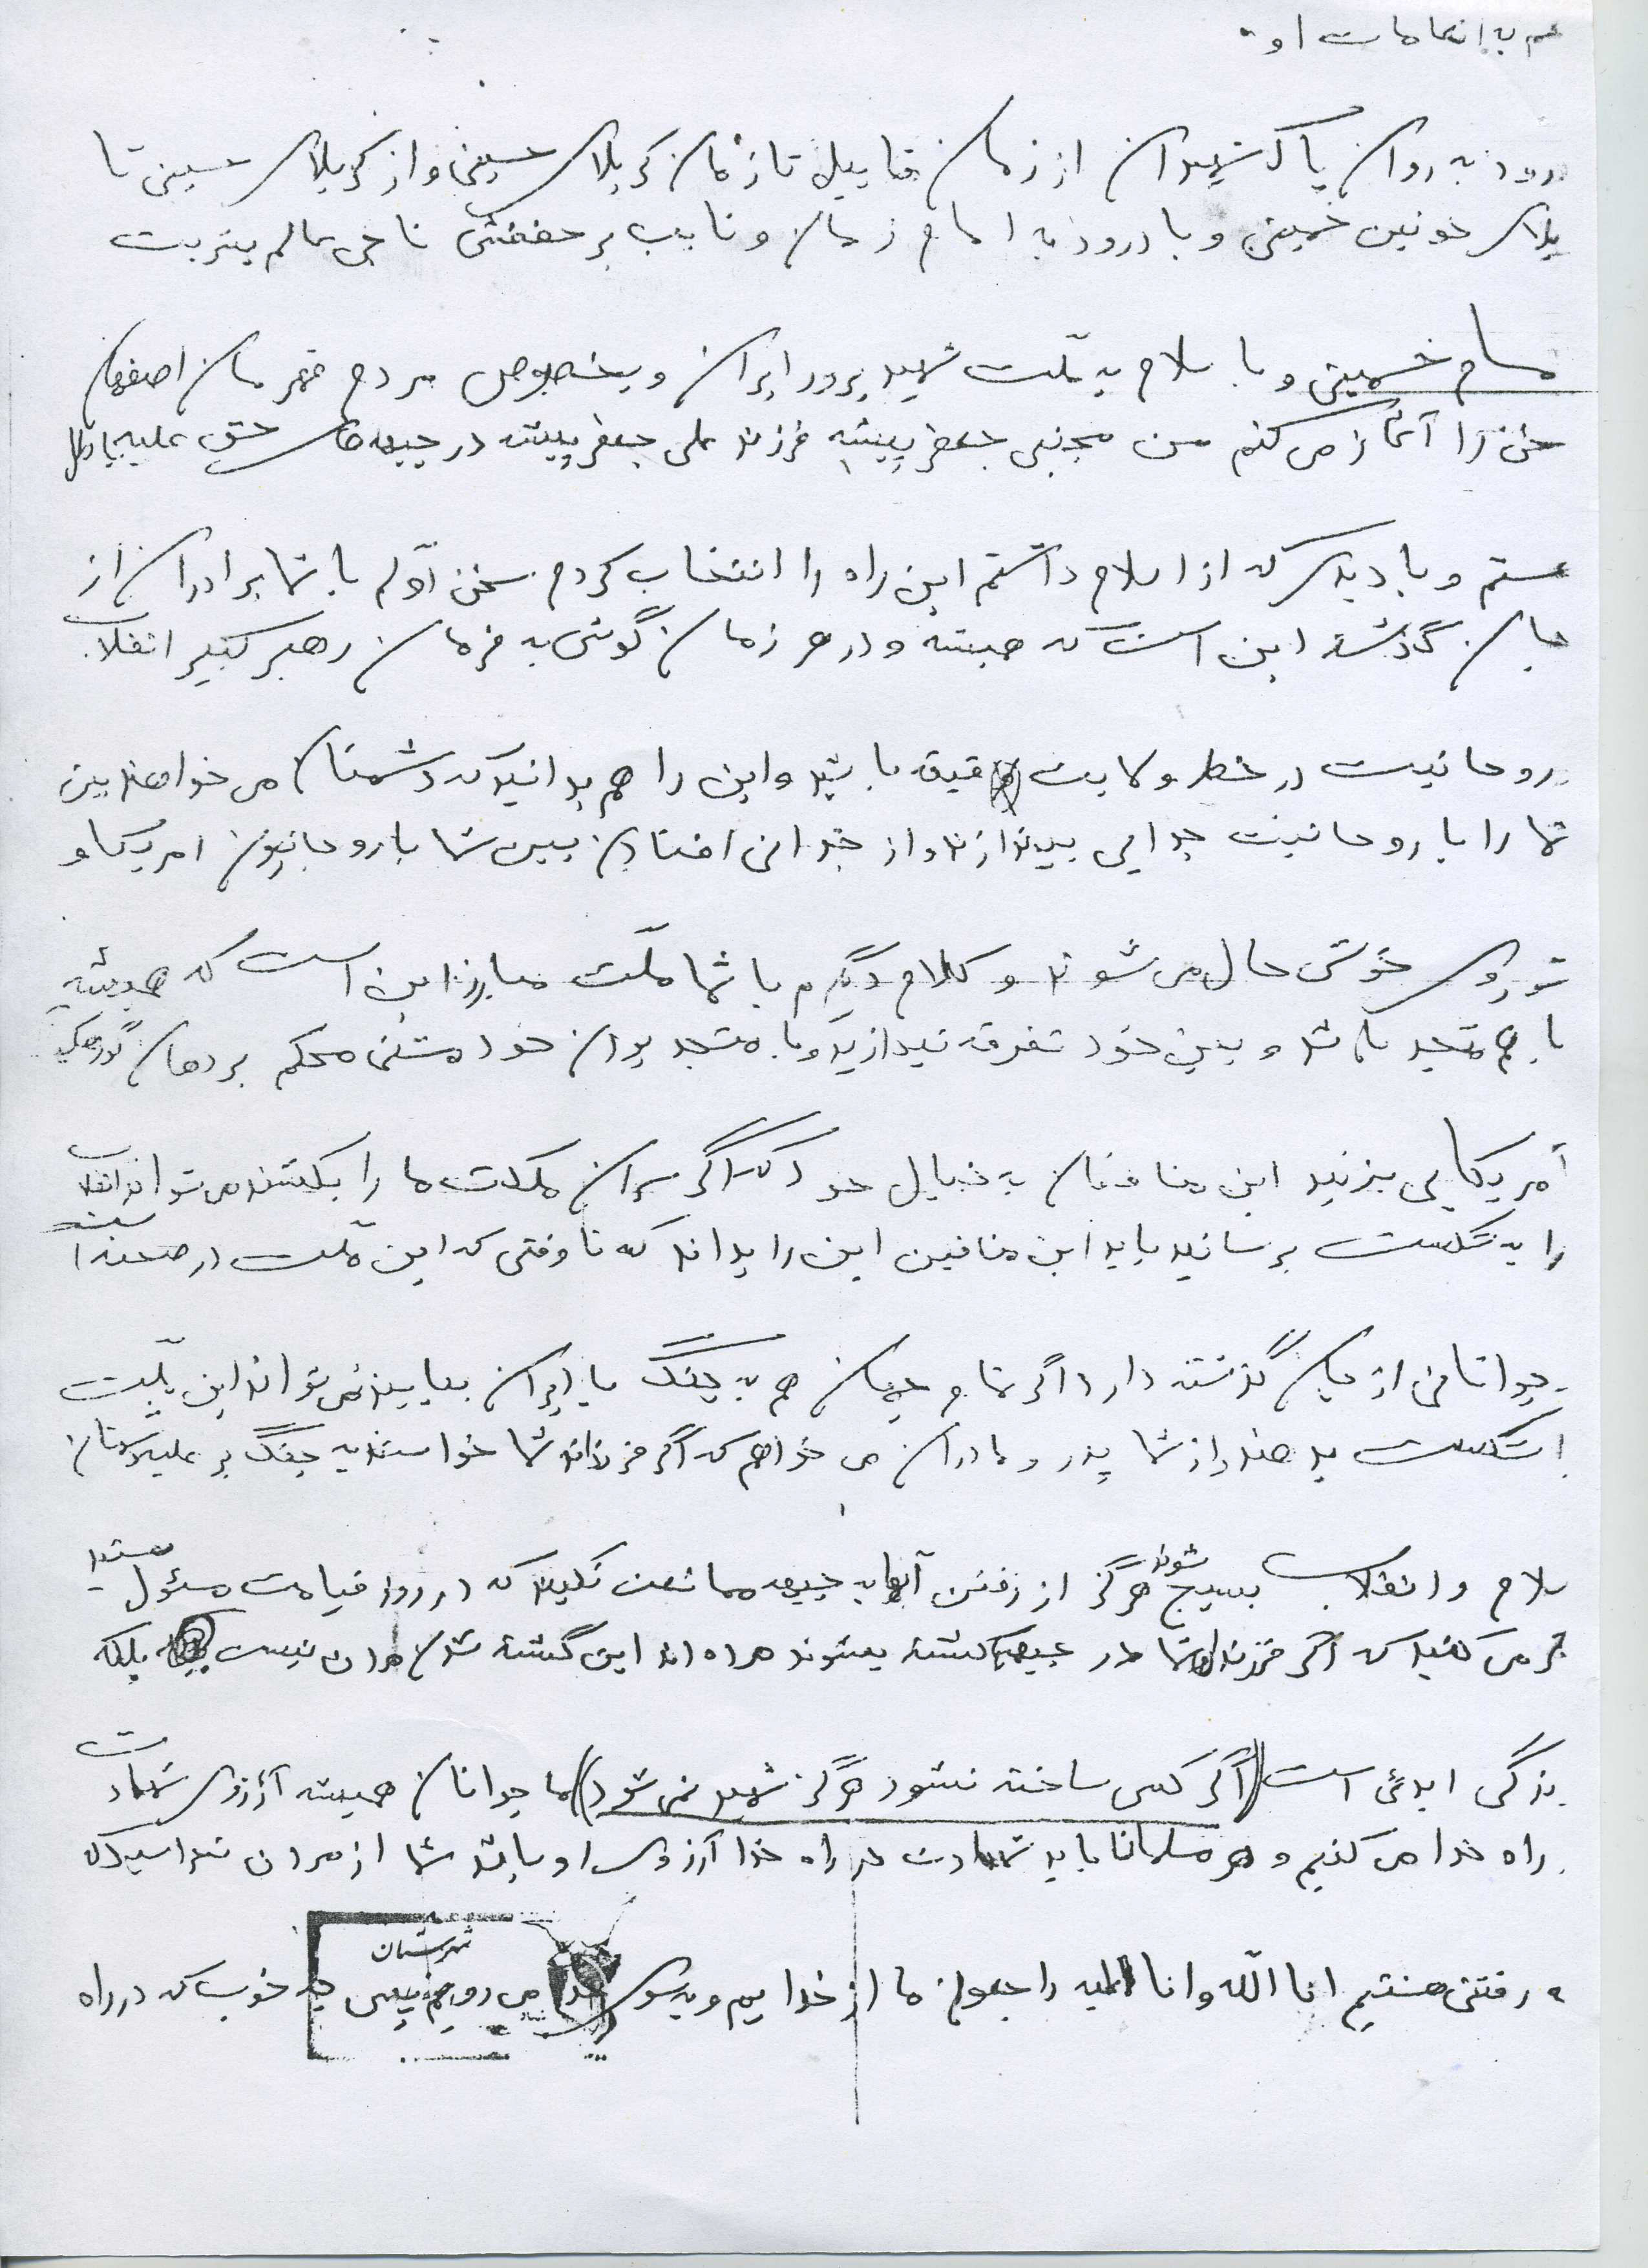 هم به انعامات او
درود به روان پاک شهیدان از زمان قابیل تا زمان کربلای حسینی و از کربلای حسینی تا
بلای خونین خمینی و با درود به امام زمان و نایب بر حقش ناجی عالم بشریت
امام خمینی و با سلام به ملت شهید پرور ایران و بخصوص مردم قهرمان اصفهان
سخن را آغاز می کنم من مجتبی جعفر پیشه فرزند علی جعفر پیشه در جبهه های حق علیه باطل
هستم و با دیدی که از اسلام داشتم این راه را انتخاب کردم سخن اولم با شما برادران از
جان گذشته این است که همیشه و در هر زمان گوش به فرمان رهبر کبیر انقلاب
روحانیت در خط ولایت فقیه باشید و این را هم بدانید که دشمنان می خواهند بین
شما را با روحانیت جدایی بیندازند و از جدائی افتادن بین شما با روحانیون امریکا و
شوروی خوش حال می شوند و کلام دیگرم با شما ملت مبارز این است که همیشه
با هم متحد باشد و بین خود تفرقه نیدازید و با متحد بودن خود مشتی محکم بر دهان
آمریکایی بزنید این منافقان به خیال خود که اگر سران مملکت ما را بکشند می توانند انقلاب
را به شکست برسانید باید این منافین این را بداند که تا وقتی که این ملت در صحنه است
جوانانی از جان گذشته دارد اگر تمام جهان هم به جنگ با ایران بیایند نمی تواند این ملت
شکست بدهند و از شما پدر و مادران می خواهم که اگر فرزندان شما خواستند به جنگ بر علیه دشمنان
سلام و انقلاب بسیج شوند هرگز از رفتن آنها به جبهه ممانعت نکنید که در روز قیامت مسئول هستید
می کنید که اگر فرزندان شما در جبهه کشته بشوند مرده اند این گشته شدن مردن نیست بلکه
زندگی ابدی است (اگر کسی ساخته نشود هرگز شهید نمی شود) ما جوانان همیشه آرزوی شهادت
راه خدا می کنیم و هر مسلمانا باید شهادت در راه خدا آرزوی او باشد شما از مردن نهراسید که
ه رفتنی هستیم انا الله وانا الیه راجعون ما از خدایم و به سوی خدا می رویم پس چه خوب که در راه
شهرستان